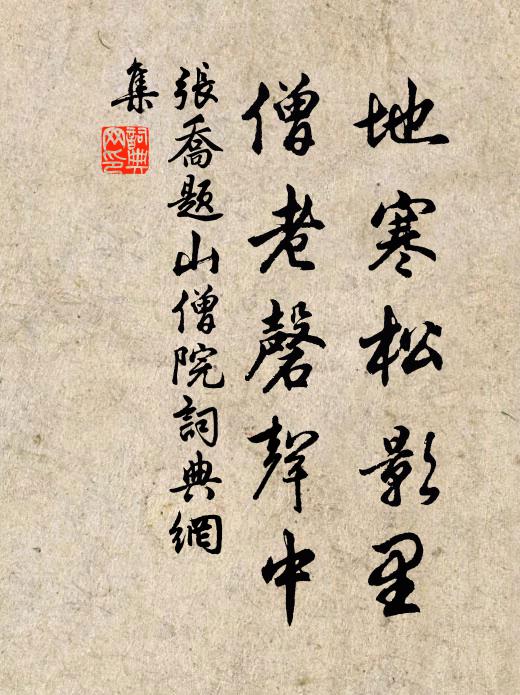 地寒松影里
僧老磬聲中
張喬題山僧院詞典網
集
詞典
网印